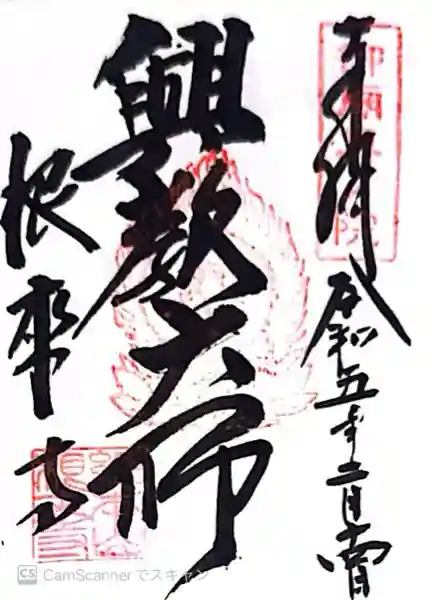 奉拝
令和五年二月
興教大師
根來寺
CS CamScannerでスキャン